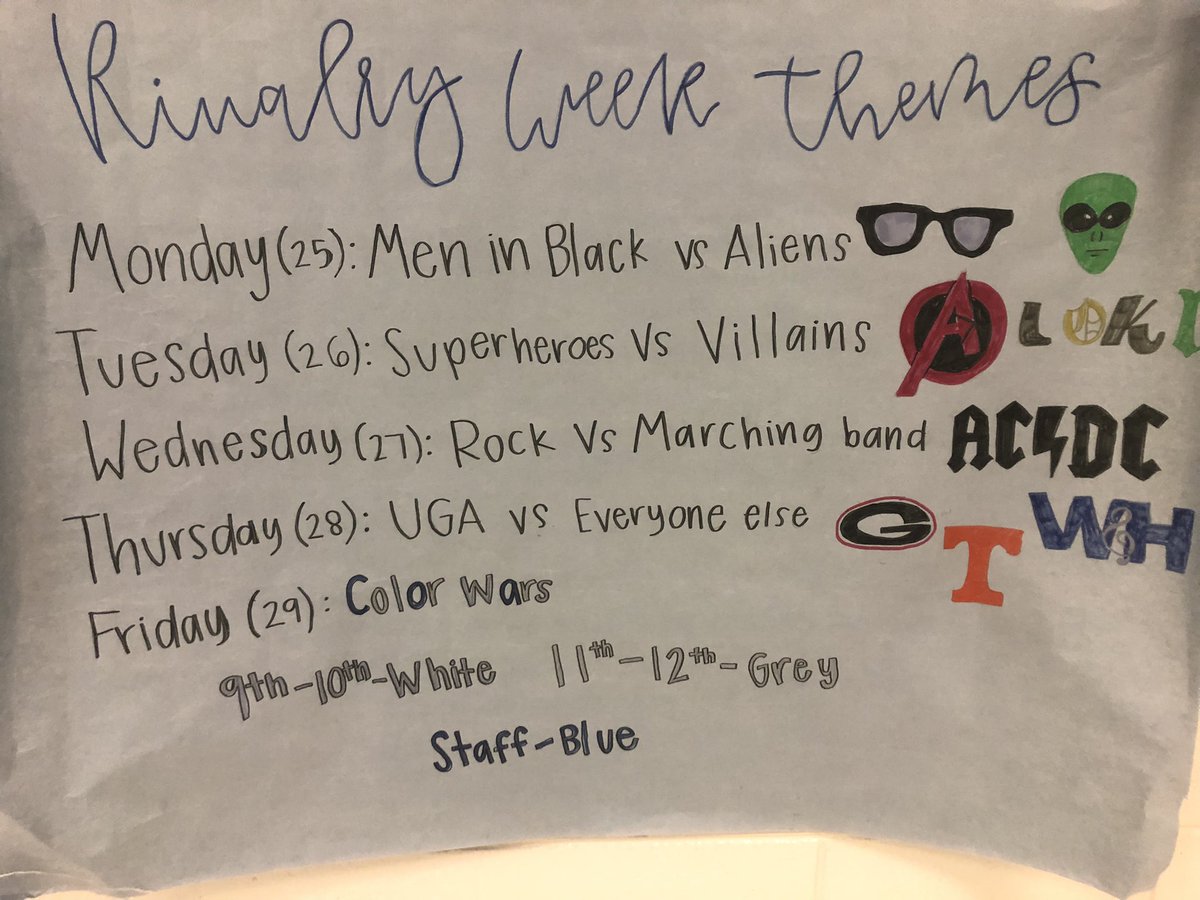 Rivalry Week Themes
Monday (25): Men in Black vs Aliens
Tuesday (26): Superheroes Vs Villains A LOKI
Wednesday (27): Rock Vs Marching band AC/DC
Thursday (28): UGA vs Everyone else G T W&H
Friday (29): Color Wars
9th-10th-White 11th-12th-Grey
Staff-Blue